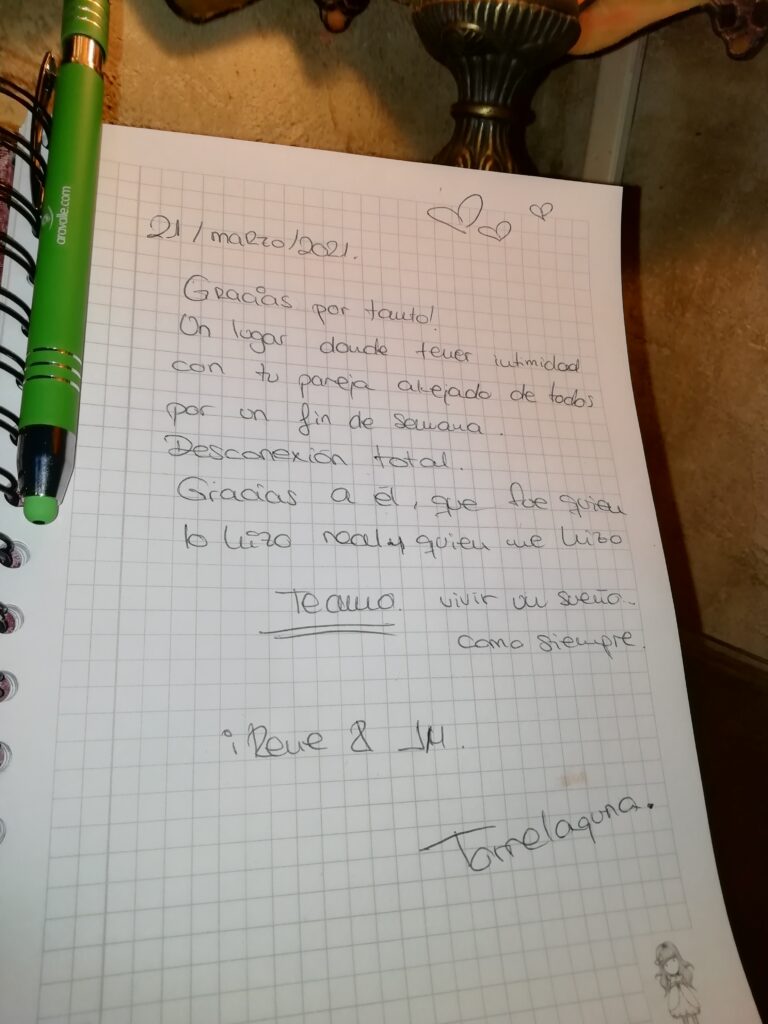 aravalle.com
21/marzo/2021.
Gracias por tanto!
Un lugar donde tener intimidad
con tu pareja alejado de todos
por un fin de semana.
Desconexión total.
Gracias a él, que fue quien
lo hizo real y quien me hizo
Te amo. vivir un sueño
como siempre.
iRene & JM.
Torrelaguna.